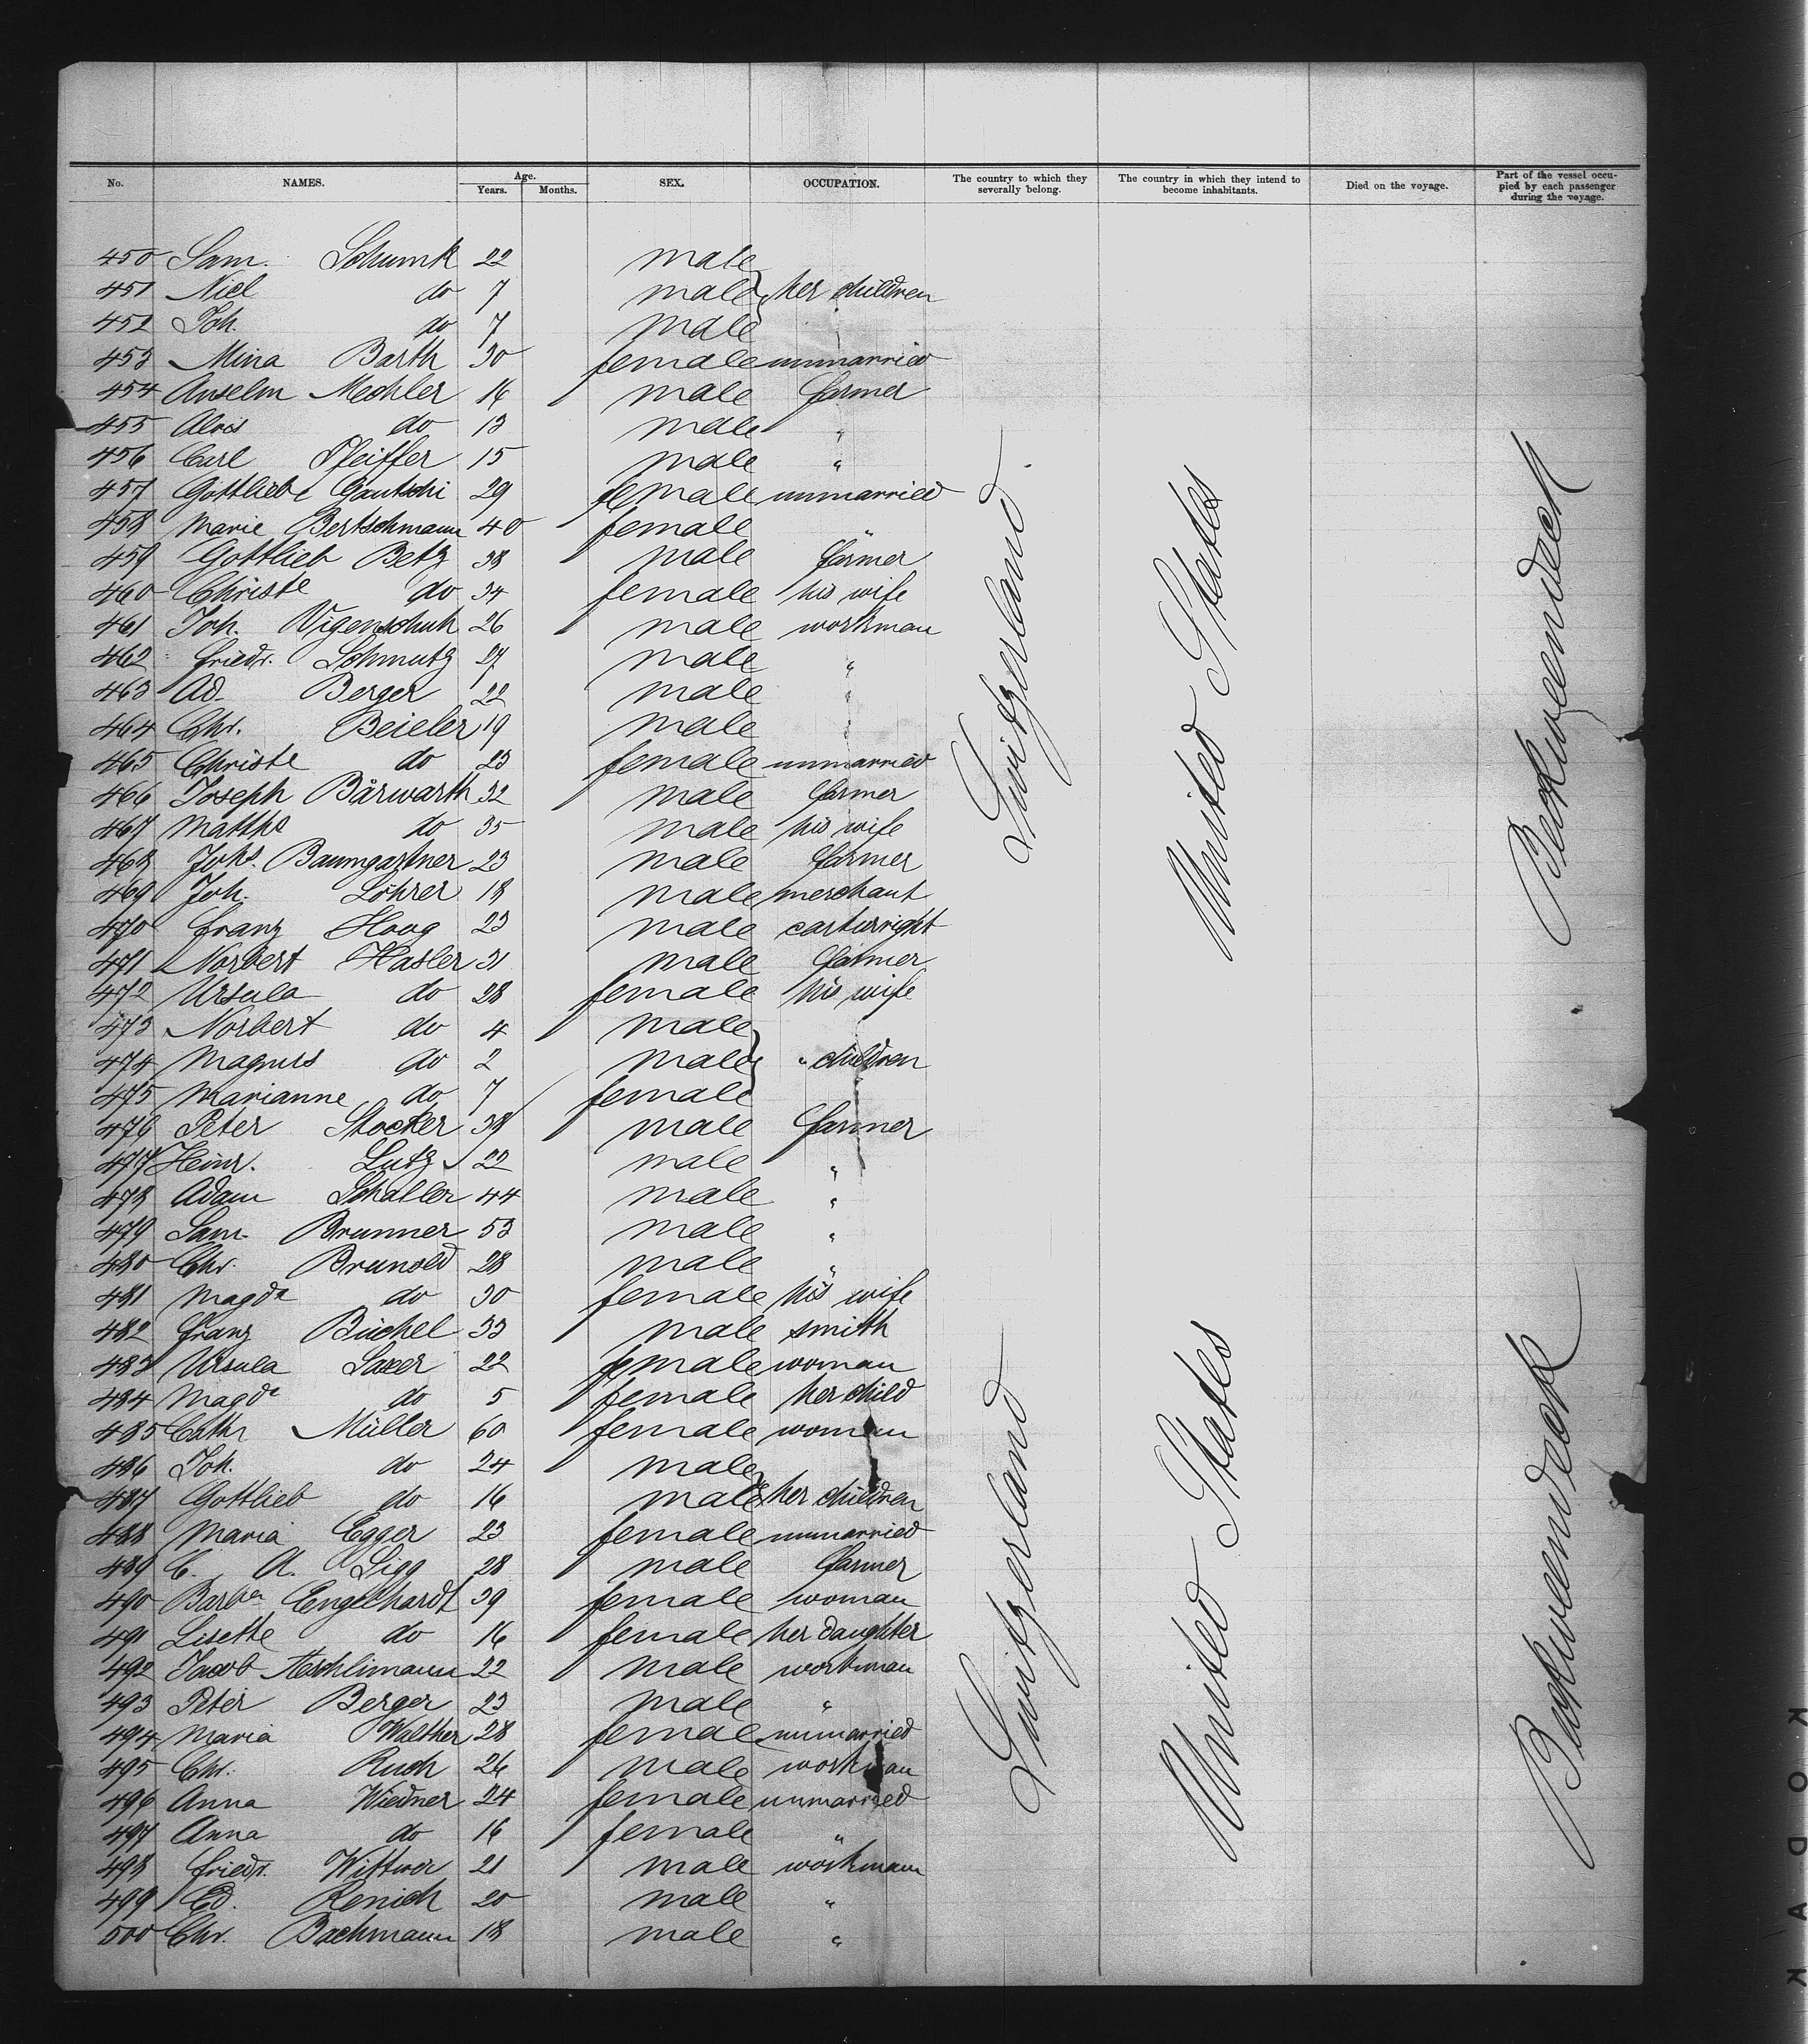 No. NAMES. Age. Years. Months. SEX. OCCUPATION. The country to which they severally belong. The country in which they intend to become inhabitants. Died on the voyage. Part of the vessel occupied by each passenger during the voyage.
450 Sam. Schunk 22 male
451 Niel do 7 male } her children
452 Joh. do 7 male
453 Mina Barth 30 female unmarried
454 Anselm Mechler 16 male farmer
455 Alois do 13 male "
456 Carl Pfeiffer 15 male "
457 Gottliebe Gautschi 29 female unmarried
458 Marie Bertschmann 40 female "
459 Gottlieb Betz 38 male farmer
460 Christe do 34 female his wife
461 Joh. Vigenschuh 26 male workman
462 Friedr. Schmutz 27 male "
463 Ad. Berger 22 male "
464 Chr. Beieler 19 male "
465 Christe do 23 female unmarried
466 Joseph Bärwarth 32 male farmer
467 Matths do 35 male his wife
468 Johs. Baumgartner 23 male farmer
469 Joh. Löhrer 18 male merchant
470 Franz Hoog 23 male cartwright
471 Norbert Hasler 31 male farmer
472 Ursula do 28 female his wife
473 Norbert do 4 male
474 Magnus do 2 male } " children
475 Marianne do 7 female
476 Peter Stocker 38 male farmer
477 Heinr. Lutz 22 male "
478 Adam Schaller 44 male "
479 Sam. Brunner 53 male "
480 Chr. Brunold 28 male "
481 Magda do 30 female his wife
482 Franz Büchel 33 male smith
483 Ursula Saxer 22 female woman
484 Magda do 5 female her child
485 Cathr Müller 60 female woman
486 Joh. do 24 male
487 Gottlieb do 16 male } her children
488 Maria Egger 23 female unmarried
489 C. A. Ligg 28 male farmer
490 Barba Engelhardt 39 female woman
491 Lisette do 16 female her daughter
492 Jacob Aeschlimann 22 male workman
493 Peter Berger 23 male "
494 Maria Walther 28 female unmarried
495 Chr. Ruch 26 male workman
496 Anna Wiedner 24 female unmarried
497 Anna do 16 female "
498 Friedr. Wittwer 21 male workmann
499 Ed. Renich 20 male "
500 Chr. Bachmann 18 male "
Switzerland.
United States
Betweendeck
Switzerland
United States
Betweendeck
KODAK